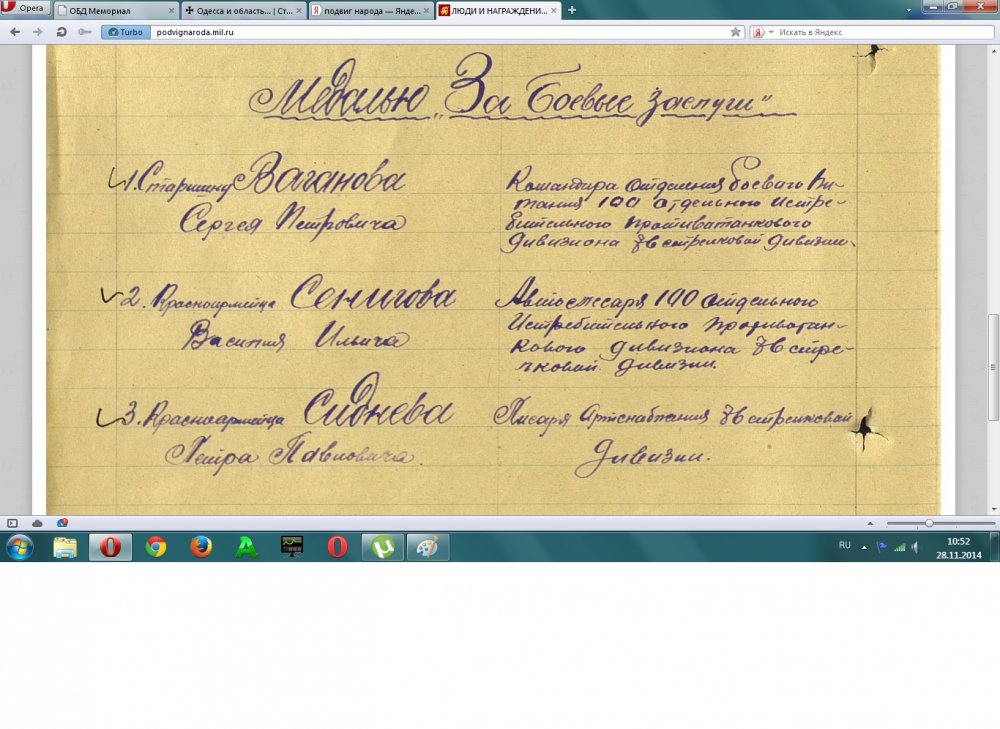 Opera
ОБД Мемориал
Одесса и область... | Ст...
подвиг народа — Янде...
ЛЮДИ И НАГРАЖДЕНИ...
Turbo
podvignaroda.mil.ru
Искать в Яндекс
Медалью „За Боевые Заслуги"
1. Старшину Ваганова
Сергея Петровича
Командира отделения боевого Пи-
тания 100 отдельного Истре-
бительного противатанкового
дивизиона 76 стрелковой дивизии.
2. Красноармейца Сенигова
Василия Ильича
Автослесаря 100 отдельного
Истребительного противотан-
кового дивизиона 76 стре-
лковой дивизии.
3. Красноармейца Сиднева
Петра Павловича.
Писаря Артснабжения 76 стрелковой
Дивизии.
RU
10:52
28.11.2014